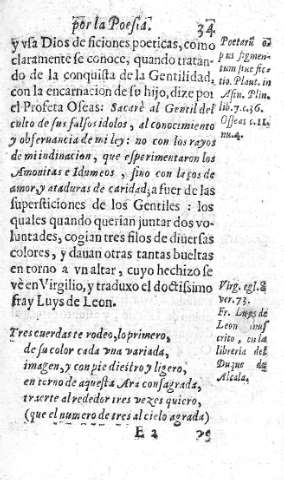 por la Poesia.
34
y vsa Dios de ficiones poeticas, como
claramente se conoce, quando tratan-
do de la conquista de la Gentilidad,
con la encarnacion de su hijo, dize por
el Profeta Oseas: Sacarè al Gentil del
culto de sus falsos idolos, al conocimiento
y obseruancia de mi ley: no con los rayos
de mi indinacion, que esperimentaron los
Amonitas e Idumeos, sino con laços de
amor, y ataduras de caridad, a fuer de las
supersticiones de los Gentiles: los
quales quando querian juntar dos vo-
luntades, cogian tres filos de diuersas
colores, y dauan otras tantas bueltas
en torno a vn altar, cuyo hechizo se
vè en Virgilio, y traduxo el doctissimo
fray Luys de Leon.
Tres cuerdas te rodeo, lo primero,
de su color cada vna variada,
imagen, y con pie diestro y ligero,
en torno de aquesta Ara consagrada,
traerte al rededor tres vezes quiero,
(que el numero de tres al cielo agrada)
E 2
Poetarũ
pus figmen-
tum fue fic
tio. Plaut. in
Asin. Plin.
lib. 7. c. 36.
Osseas c. 11.
nu. 4.
Virg. egl. 8
ver. 73.
Fr. Luys de
Leon mus
crito, en la
libreria del
Duque de
Alcala.